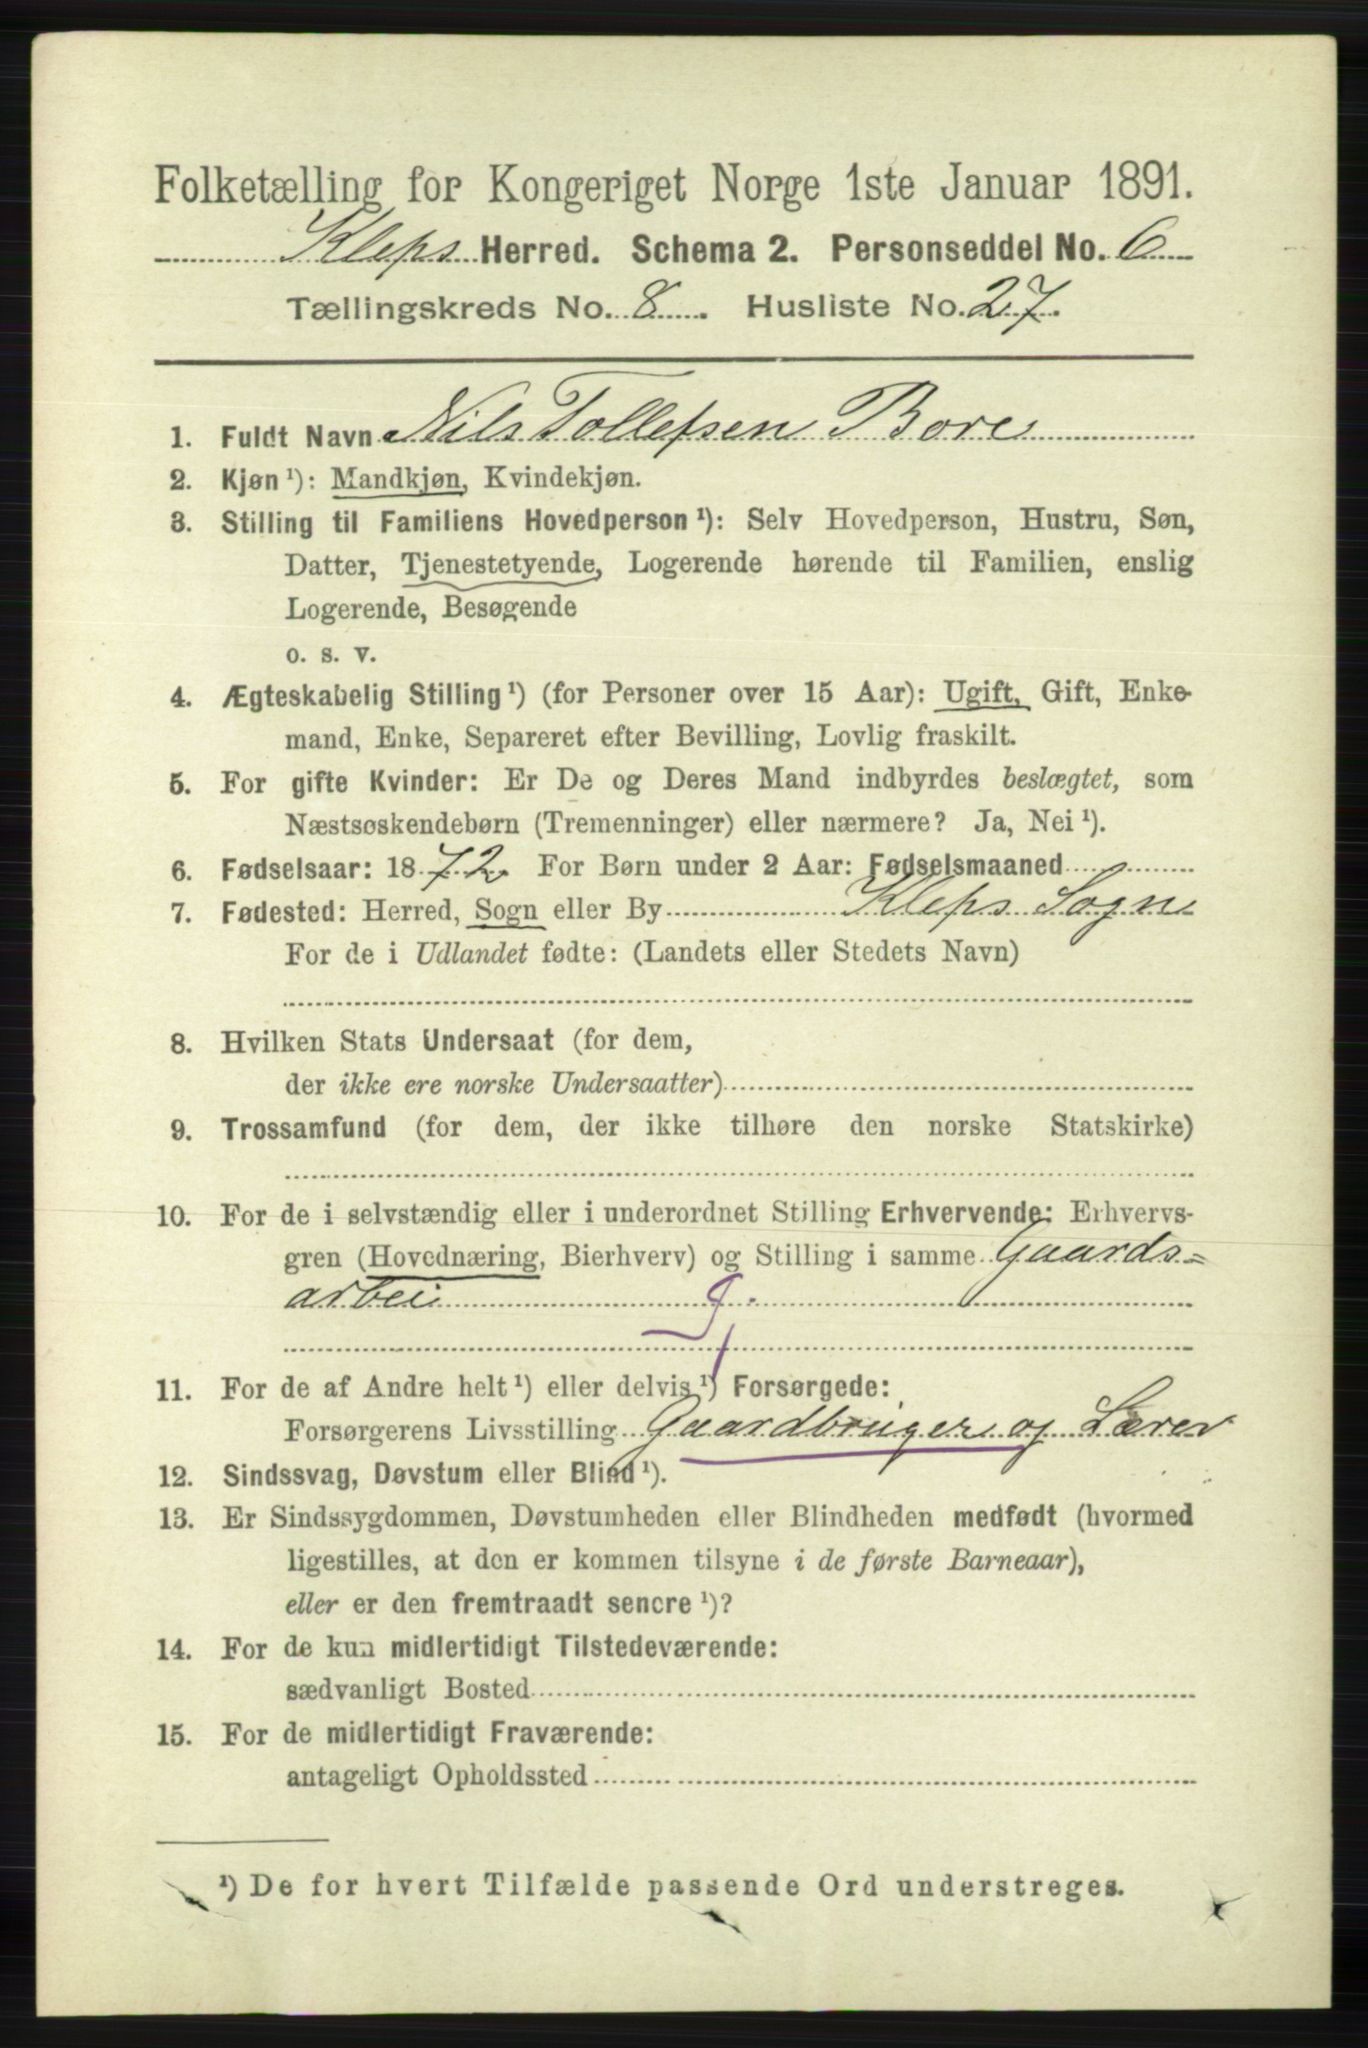 Folketælling for Kongeriget Norge 1ste Januar 1891.
Kleps Herred. Schema 2. Personseddel No. 6
Tællingskreds No. 8. Husliste No. 27.
1. Fuldt Navn Nils Tollefsen Bore
2. Kjøn ¹): Mandkjøn, Kvindekjøn.
3. Stilling til Familiens Hovedperson ¹): Selv Hovedperson, Hustru, Søn,
Datter, Tjenestetyende, Logerende hørende til Familien, enslig
Logerende, Besøgende
o. s. v.
4. Ægteskabelig Stilling ¹) (for Personer over 15 Aar): Ugift, Gift, Enke-
mand, Enke, Separeret efter Bevilling, Lovlig fraskilt.
5. For gifte Kvinder: Er De og Deres Mand indbyrdes beslægtet, som
Næstsøskendebørn (Tremenninger) eller nærmere? Ja, Nei ¹).
6. Fødselsaar: 1872 For Børn under 2 Aar: Fødselsmaaned
7. Fødested: Herred, Sogn eller By Kleps Sogn
For de i Udlandet fødte: (Landets eller Stedets Navn)
8. Hvilken Stats Undersaat (for dem,
der ikke ere norske Undersaatter)
9. Trossamfund (for dem, der ikke tilhøre den norske Statskirke)
10. For de i selvstændig eller i underordnet Stilling Erhvervende: Erhvervs-
gren (Hovednæring, Bierhverv) og Stilling i samme Gaards=
arbei
11. For de af Andre helt ¹) eller delvis ¹) Forsørgede:
Forsørgerens Livsstilling Gaardbruger og Lærer
12. Sindssvag, Døvstum eller Blind ¹).
13. Er Sindssygdommen, Døvstumheden eller Blindheden medfødt (hvormed
ligestilles, at den er kommen tilsyne i de første Barneaar),
eller er den fremtraadt senere ¹)?
14. For de kun midlertidigt Tilstedeværende:
sædvanligt Bosted
15. For de midlertidigt Fraværende:
antageligt Opholdssted
¹) De for hvert Tilfælde passende Ord understreges.